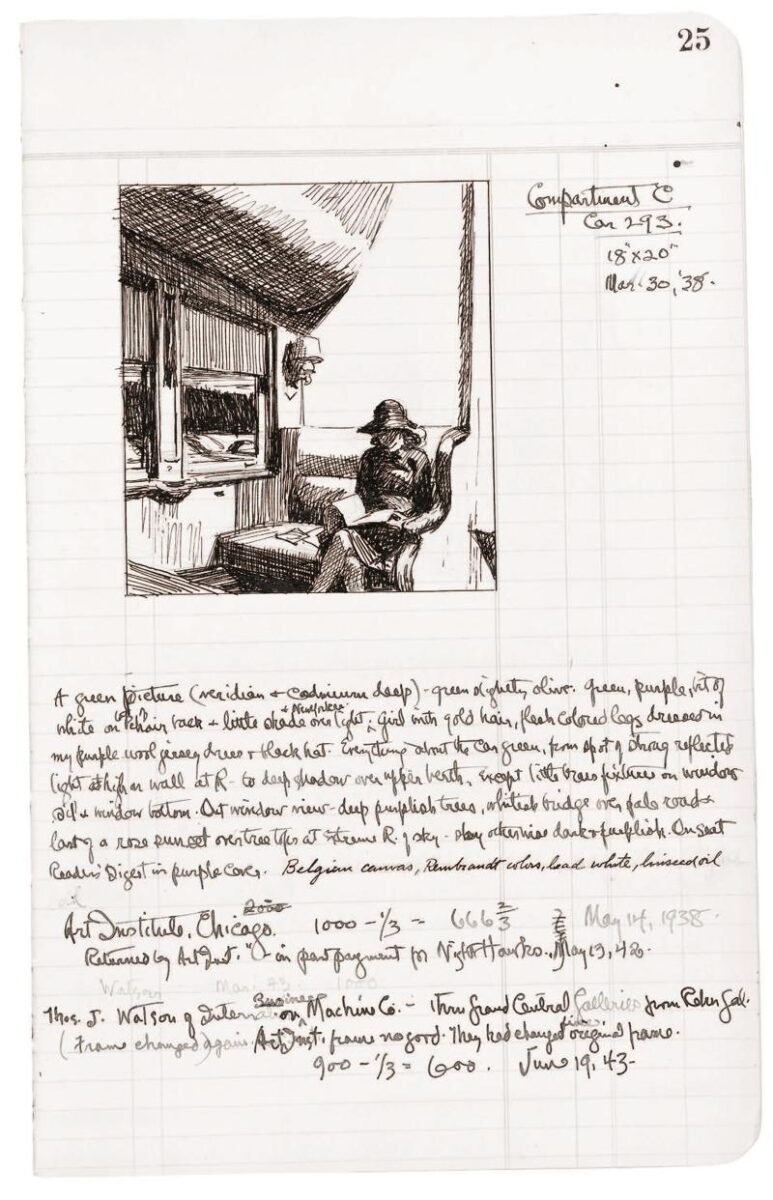 25
Compartment C
Car 293.
18"x20"
Mar. 30, '38.
A green picture (veridian + cadmium deep) - green slightly olive. Green, purple, bit of
white on chair back + little shade over light. Girl with gold hair, flesh colored legs dressed in
my purple wool jersey dress + black hat. Everything about the car green, from spot of strong reflected
light at high on wall at R- to deep shadow over upper berth, except little brass fixtures on window
sill + window bottom. Out window view - deep purplish trees, whitish bridge over pale road +
last of a rose sunset over tree tops at extreme R. of sky - sky otherwise dark + purplish. On seat
Readers' Digest in purple cover. Belgian canvas, Rembrandt colors, lead white, linseed oil
2000
Art Institute, Chicago. 1000 - 1/3 = 666 2/3 May 14, 1938.
Returned by Art Inst. " - in part payment for Night Hawks. May 13, 42.
Watson Mar. 43 1000
Business
Thos. J. Watson of International Machine Co. - thru Grand Central Galleries from Rehn Gal.
(Frame changed again. Art Inst. frame no good. They had changed fine original frame.
900 - 1/3 = 600. June 19, 43-